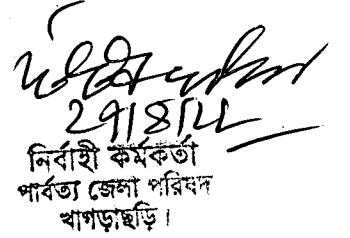 29/8/22
নির্বাহী কর্মকর্তা
পার্বত্য জেলা পরিষদ
খাগড়াছড়ি।